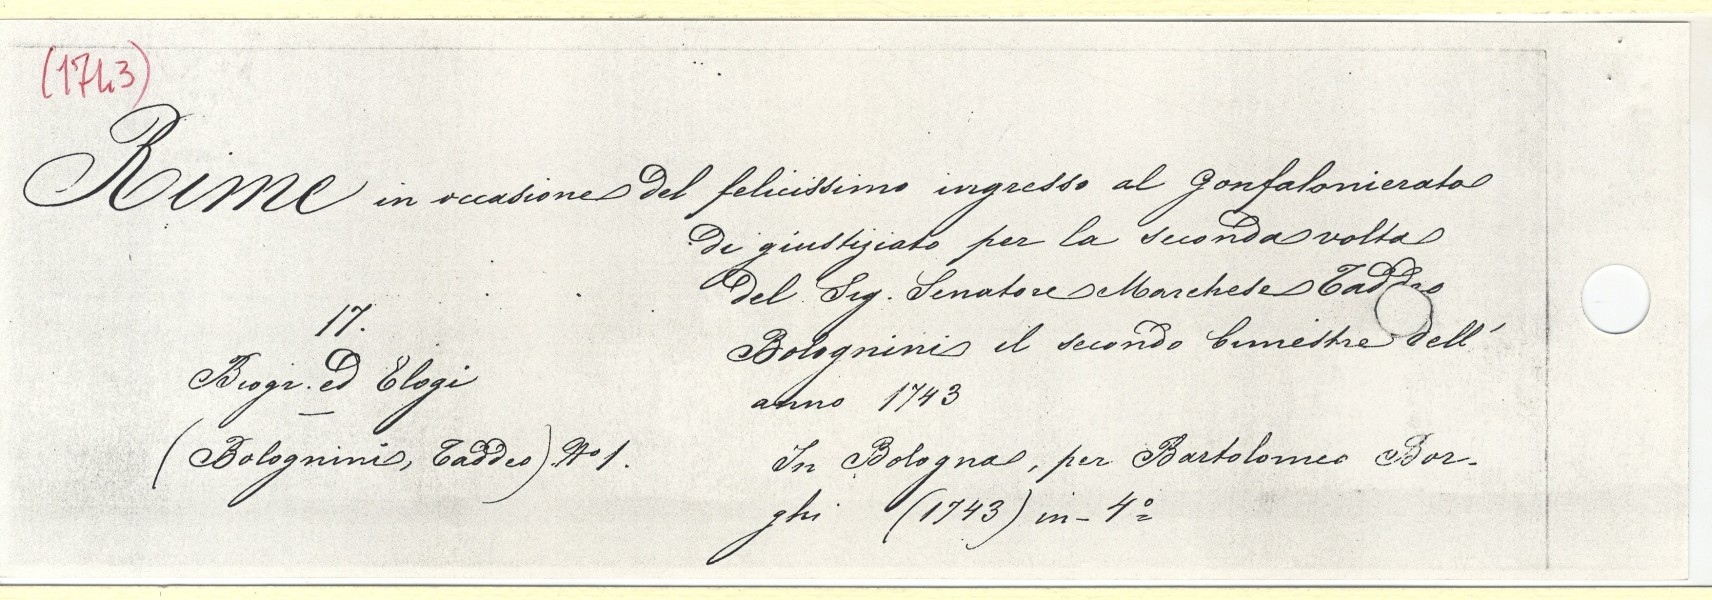 (1743)
Rime in occasione del felicissimo ingresso al Gonfalonierato
di giustiziato per la seconda volta
del Sig. Senatore Marchese Taddeo
Bolognini il secondo bimestre dell'
anno 1743
17.
Biogr. ed Elogi
(Bolognini, Taddeo) No 1.
In Bologna, per Bartolomeo Bor-
ghi (1743) in-4º